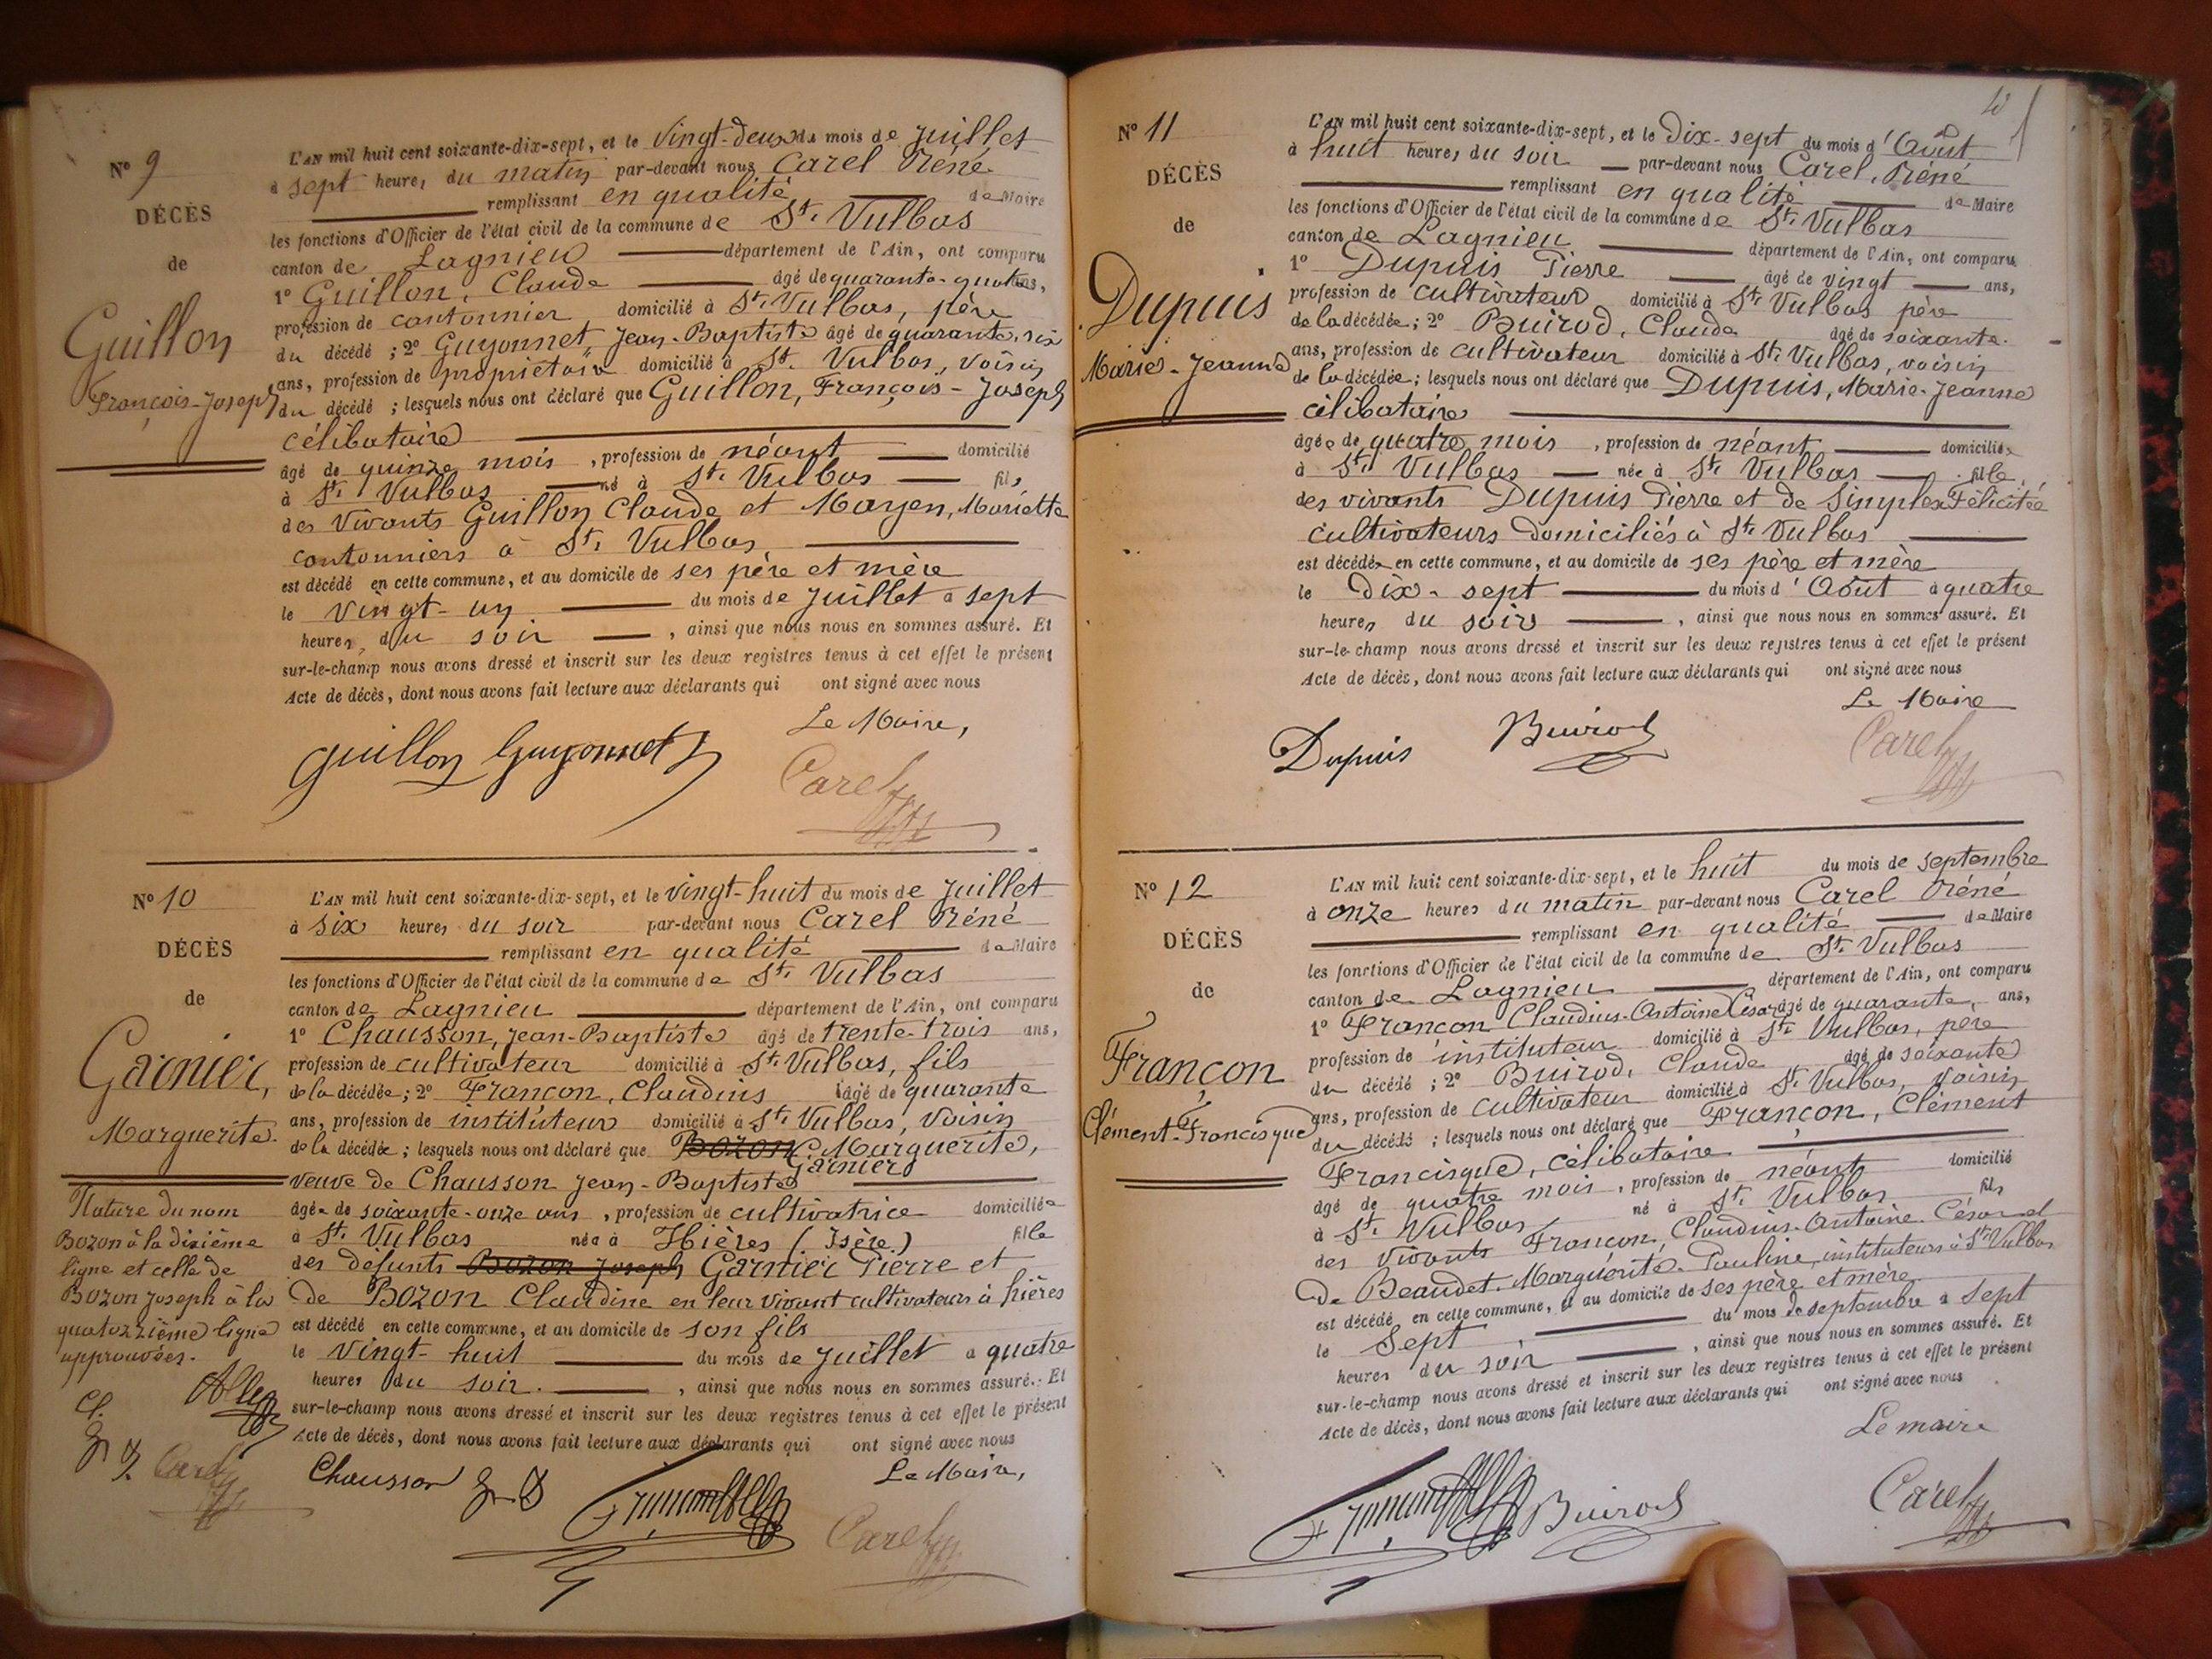 Nº 9
DÉCÈS
de
Guillon
François-Joseph
L'AN mil huit cent soixante-dix-sept, et le vingt-deux du mois de juillet
à sept heures du matin par-devant nous Carel Réné
remplissant en qualité de Maire
les fonctions d'Officier de l'état civil de la commune de St. Vulbas
canton de Lagnieu département de l'Ain, ont comparu
1º Guillon, Claude âgé de quarante-quatre ans,
profession de cantonnier domicilié à St. Vulbas, père
du décédé ; 2º Guyonnet, Jean-Baptiste âgé de quarante-six
ans, profession de propriétaire domicilié à St. Vulbas, voisin
du décédé ; lesquels nous ont déclaré que Guillon, François-Joseph
célibataire
âgé de quinze mois, profession de néant domicilié
à St. Vulbas né à St. Vulbas fils
des vivants Guillon Claude et Mayen, Mariette
cantonniers à St. Vulbas,
est décédé en cette commune, et au domicile de ses père et mère
le vingt-un du mois de juillet à sept
heures, du soir, ainsi que nous nous en sommes assuré. Et
sur-le-champ nous avons dressé et inscrit sur les deux registres tenus à cet effet le présent
Acte de décès, dont nous avons fait lecture aux déclarants qui ont signé avec nous
Le Maire,
Guillon Guyonnet
Carel
Nº 10
DÉCÈS
de
Garnier,
Marguerite.
L'AN mil huit cent soixante-dix-sept, et le vingt-huit du mois de juillet
à six heures du soir par-devant nous Carel Réné
remplissant en qualité de Maire
les fonctions d'Officier de l'état civil de la commune de St. Vulbas
canton de Lagnieu département de l'Ain, ont comparu
1º Chausson, Jean-Baptiste âgé de trente-trois ans,
profession de cultivateur domicilié à St. Vulbas, fils
de la décédée ; 2º Françon, Claudius âgé de quarante
ans, profession de instituteur domicilié à St. Vulbas, voisin
de la décédée ; lesquels nous ont déclaré que Bozon Marguerite,
Garnier
veuve de Chausson Jean-Baptiste
âgée de soixante-onze ans, profession de cultivatrice domiciliée
à St. Vulbas née à Hières (Isère) fille
des défunts Bozon Joseph Garnier Pierre et
de Bozon Claudine en leur vivant cultivateurs à hières
est décédé en cette commune, et au domicile de son fils
le vingt-huit du mois de juillet à quatre
heures du soir., ainsi que nous nous en sommes assuré. Et
sur-le-champ nous avons dressé et inscrit sur les deux registres tenus à cet effet le présent
Acte de décès, dont nous avons fait lecture aux déclarants qui ont signé avec nous
Le Maire,
Rature du nom
Bozon à la dixième
ligne et celle de
Bozon Joseph à la
quatorzième ligne
approuvées.
Carel
Chausson
Françon
Carel
Nº 11
DÉCÈS
de
Dupuis
Marie-Jeanne
L'AN mil huit cent soixante-dix-sept, et le dix-sept du mois d'Août
à huit heures du soir par-devant nous Carel, Réné
remplissant en qualité de Maire
les fonctions d'Officier de l'état civil de la commune de St. Vulbas
canton de Lagnieu département de l'Ain, ont comparu
1º Dupuis Pierre âgé de vingt ans,
profession de cultivateur domicilié à St. Vulbas père
de la décédée ; 2º Buirod, Claude âgé de soixante
ans, profession de cultivateur domicilié à St. Vulbas, voisin
de la décédée ; lesquels nous ont déclaré que Dupuis, Marie-Jeanne
célibataire
âgée de quatre mois, profession de néant domiciliée
à St. Vulbas née à St. Vulbas fille
des vivants Dupuis Pierre et de Simplex Félicitée
cultivateurs domiciliés à St. Vulbas
est décédée en cette commune, et au domicile de ses père et mère
le dix-sept du mois d'Août à quatre
heures du soir, ainsi que nous nous en sommes assuré. Et
sur-le-champ nous avons dressé et inscrit sur les deux registres tenus à cet effet le présent
Acte de décès, dont nous avons fait lecture aux déclarants qui ont signé avec nous
Le Maire
Dupuis Buirod
Carel
Nº 12
DÉCÈS
de
Françon
Clément-Francisque
L'AN mil huit cent soixante-dix-sept, et le huit du mois de septembre
à onze heures du matin par-devant nous Carel Réné
remplissant en qualité de Maire
les fonctions d'Officier de l'état civil de la commune de St. Vulbas
canton de Lagnieu département de l'Ain, ont comparu
1º Françon Claudius-Antoine César âgé de quarante ans,
profession de instituteur domicilié à St. Vulbas, père
du décédé ; 2º Buirod, Claude âgé de soixante
ans, profession de cultivateur domicilié à St. Vulbas, voisin
du décédé ; lesquels nous ont déclaré que Françon, Clément
Francisque, célibataire
âgé de quatre mois, profession de néant domicilié
à St. Vulbas né à St. Vulbas fils
des vivants Françon, Claudius-Antoine César et
de Beaudet Marguerite-Pauline, instituteurs à St. Vulbas
est décédé en cette commune, et au domicile de ses père et mère
le sept du mois de septembre à sept
heures du soir, ainsi que nous nous en sommes assuré. Et
sur-le-champ nous avons dressé et inscrit sur les deux registres tenus à cet effet le présent
Acte de décès, dont nous avons fait lecture aux déclarants qui ont signé avec nous
Le maire
Françon Buirod
Carel